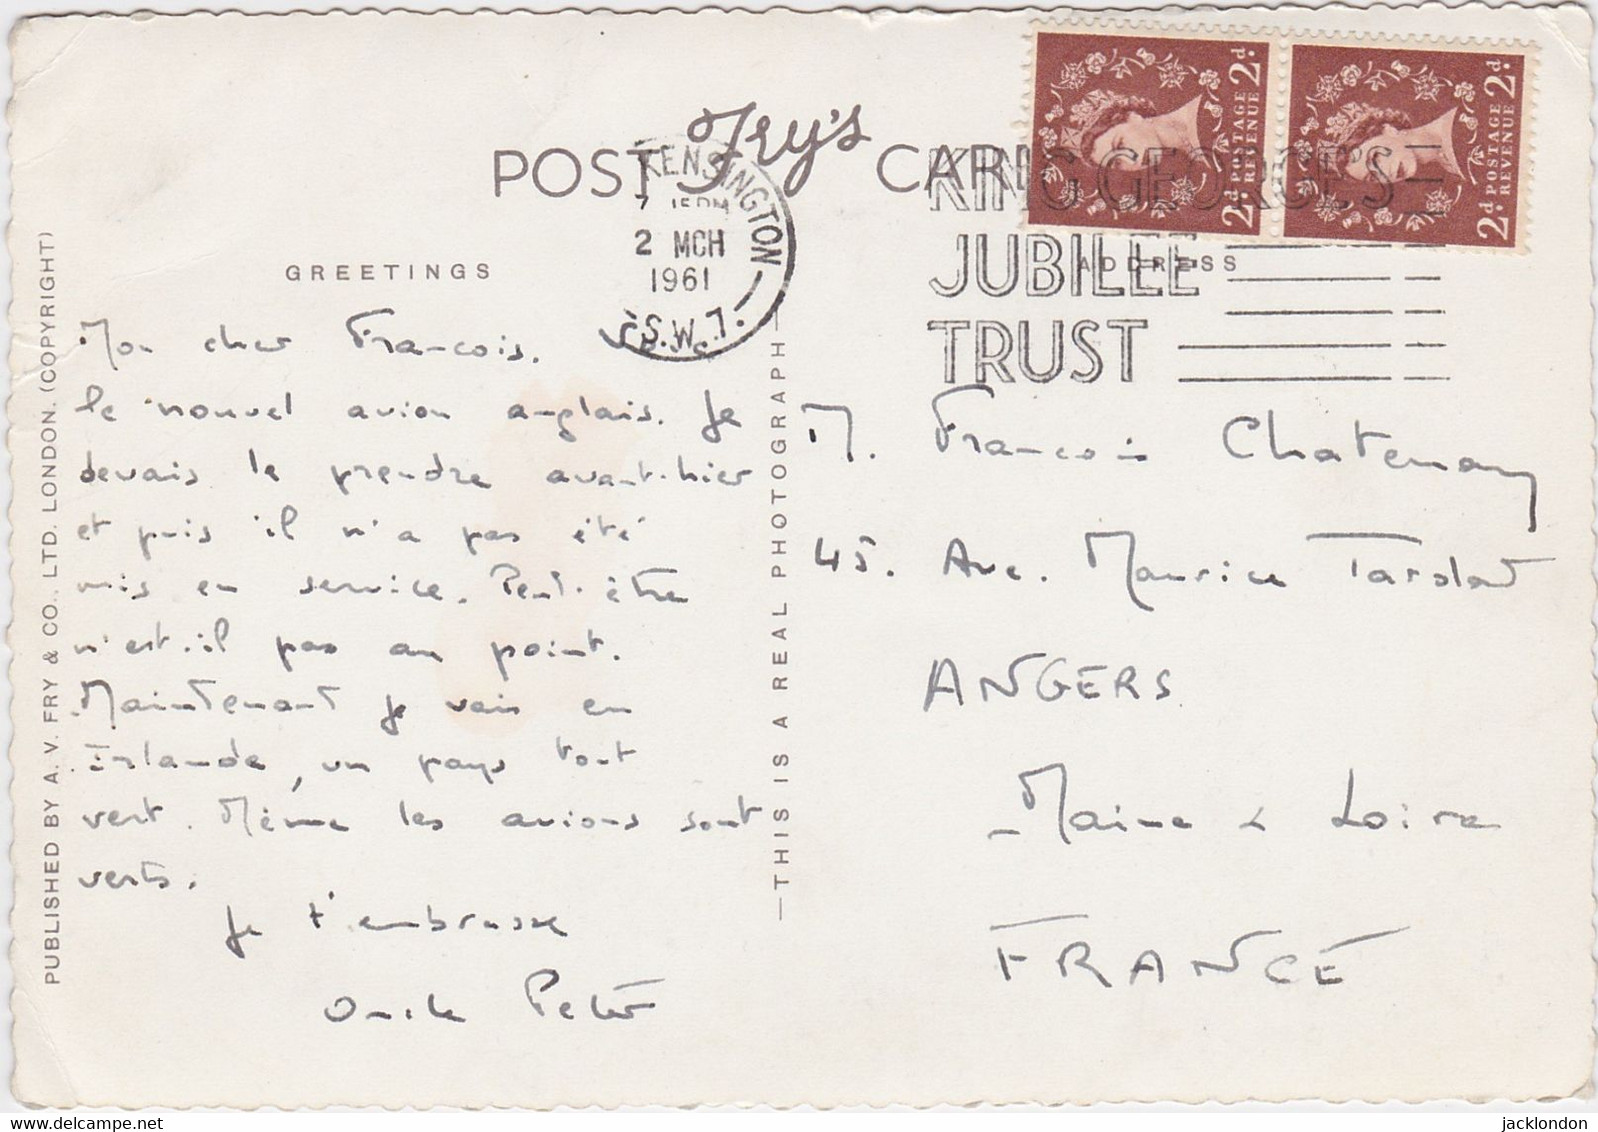 POST Fry's CARD
KENSINGTON
7 15PM
2 MCH
1961
S.W.7.
KING GEORGE'S
JUBILEE
TRUST
2d POSTAGE REVENUE 2d
2d POSTAGE REVENUE 2d
GREETINGS
ADDRESS
Mon cher François. Voici
le nouvel avion anglais. Je
devais le prendre avant-hier
et puis il n'a pas été
mis en service. Peut-être
n'est-il pas au point.
Maintenant je vais en
Irlande, un pays tout
vert. Même les avions sont
verts.
Je t'embrasse
Oncle Peter
M. François Chatenay
45. Ave. Maurice
ANGERS
Maine & Loire
FRANCE
PUBLISHED BY A. V. FRY & CO., LTD. LONDON. (COPYRIGHT)
—THIS IS A REAL PHOTOGRAPH—
jacklondon